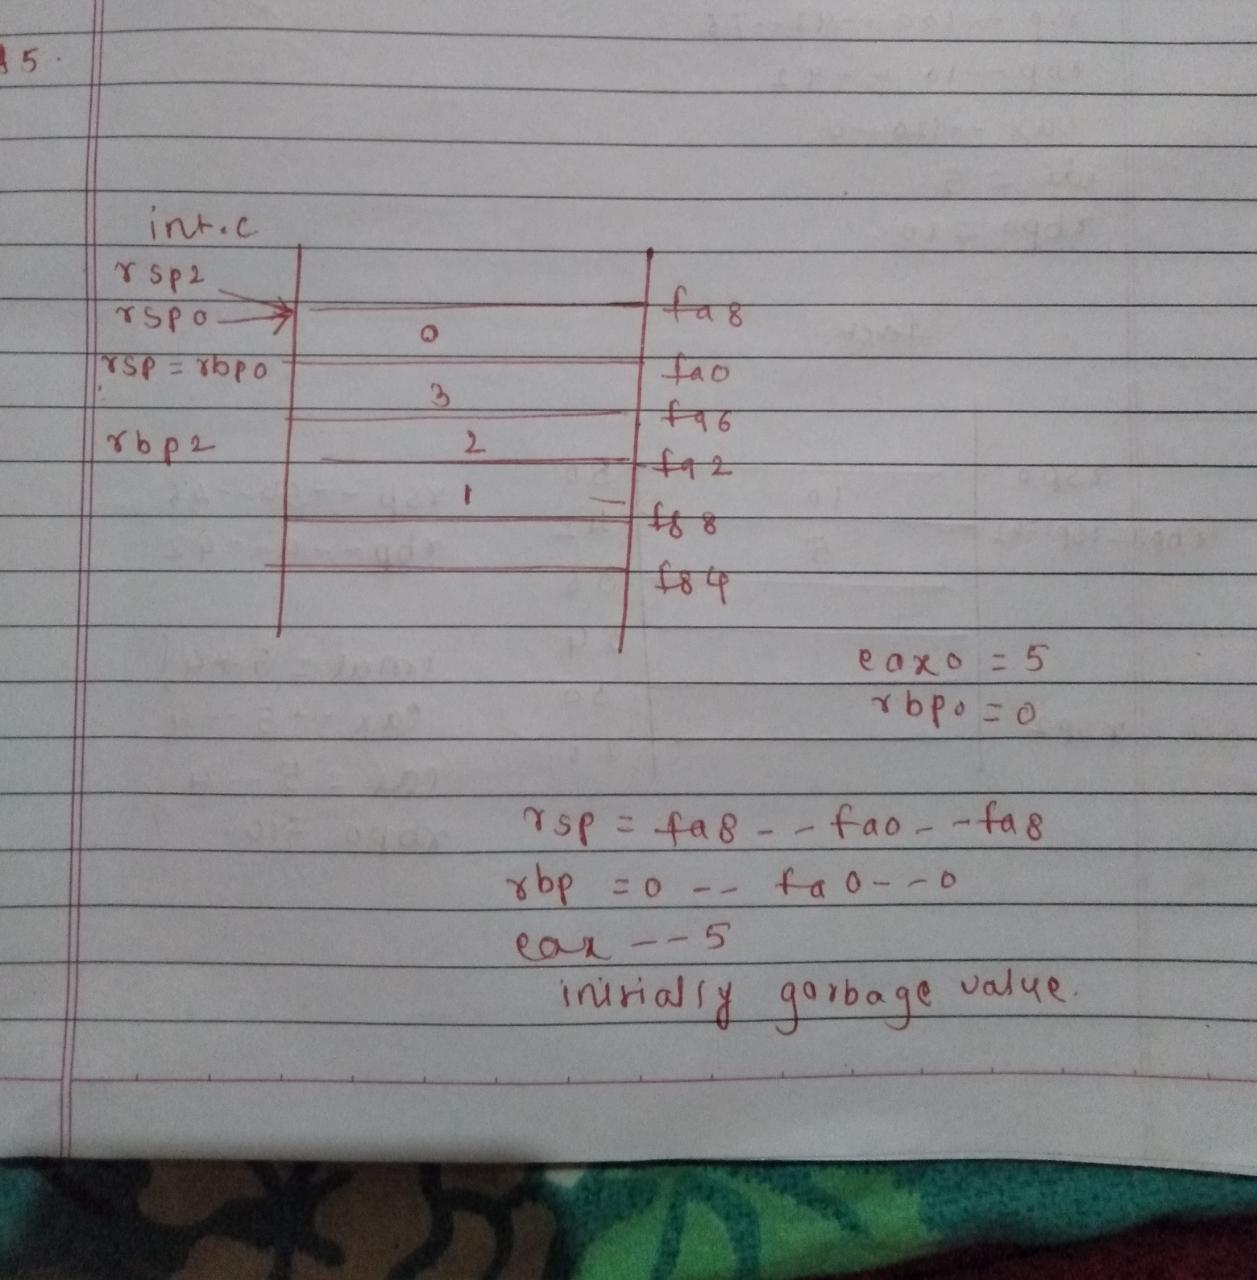 5.
int.c
rsp2
fa8
rsp0
0
rsp = rbp0
fa0
3
fa6
rbp2
2
fa2
1
f88
f84
eax0 = 5
rbp0 = 0
rsp = fa8 -- fa0 -- fa8
rbp = 0 -- fa0 -- 0
eax -- 5
initially garbage value.